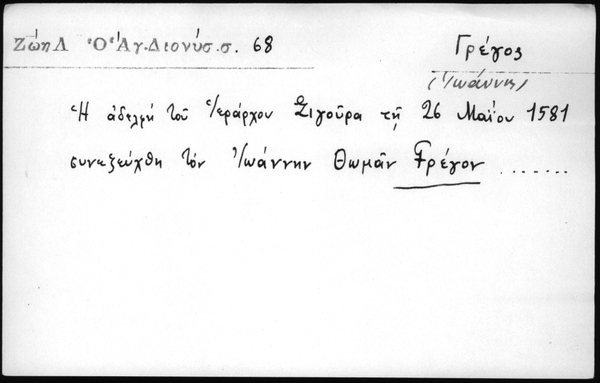 Ζώη Λ Ὁ Ἅγ. Διονύσ. σ. 68
Γρέγος
(Ἰωάννης)
Ἡ ἀδελφή τοῦ Ἱεράρχου Σιγοῦρα τῇ 26 Μαΐου 1581
συνεζεύχθη τόν Ἰωάννην Θωμᾶν Γρέγον .......